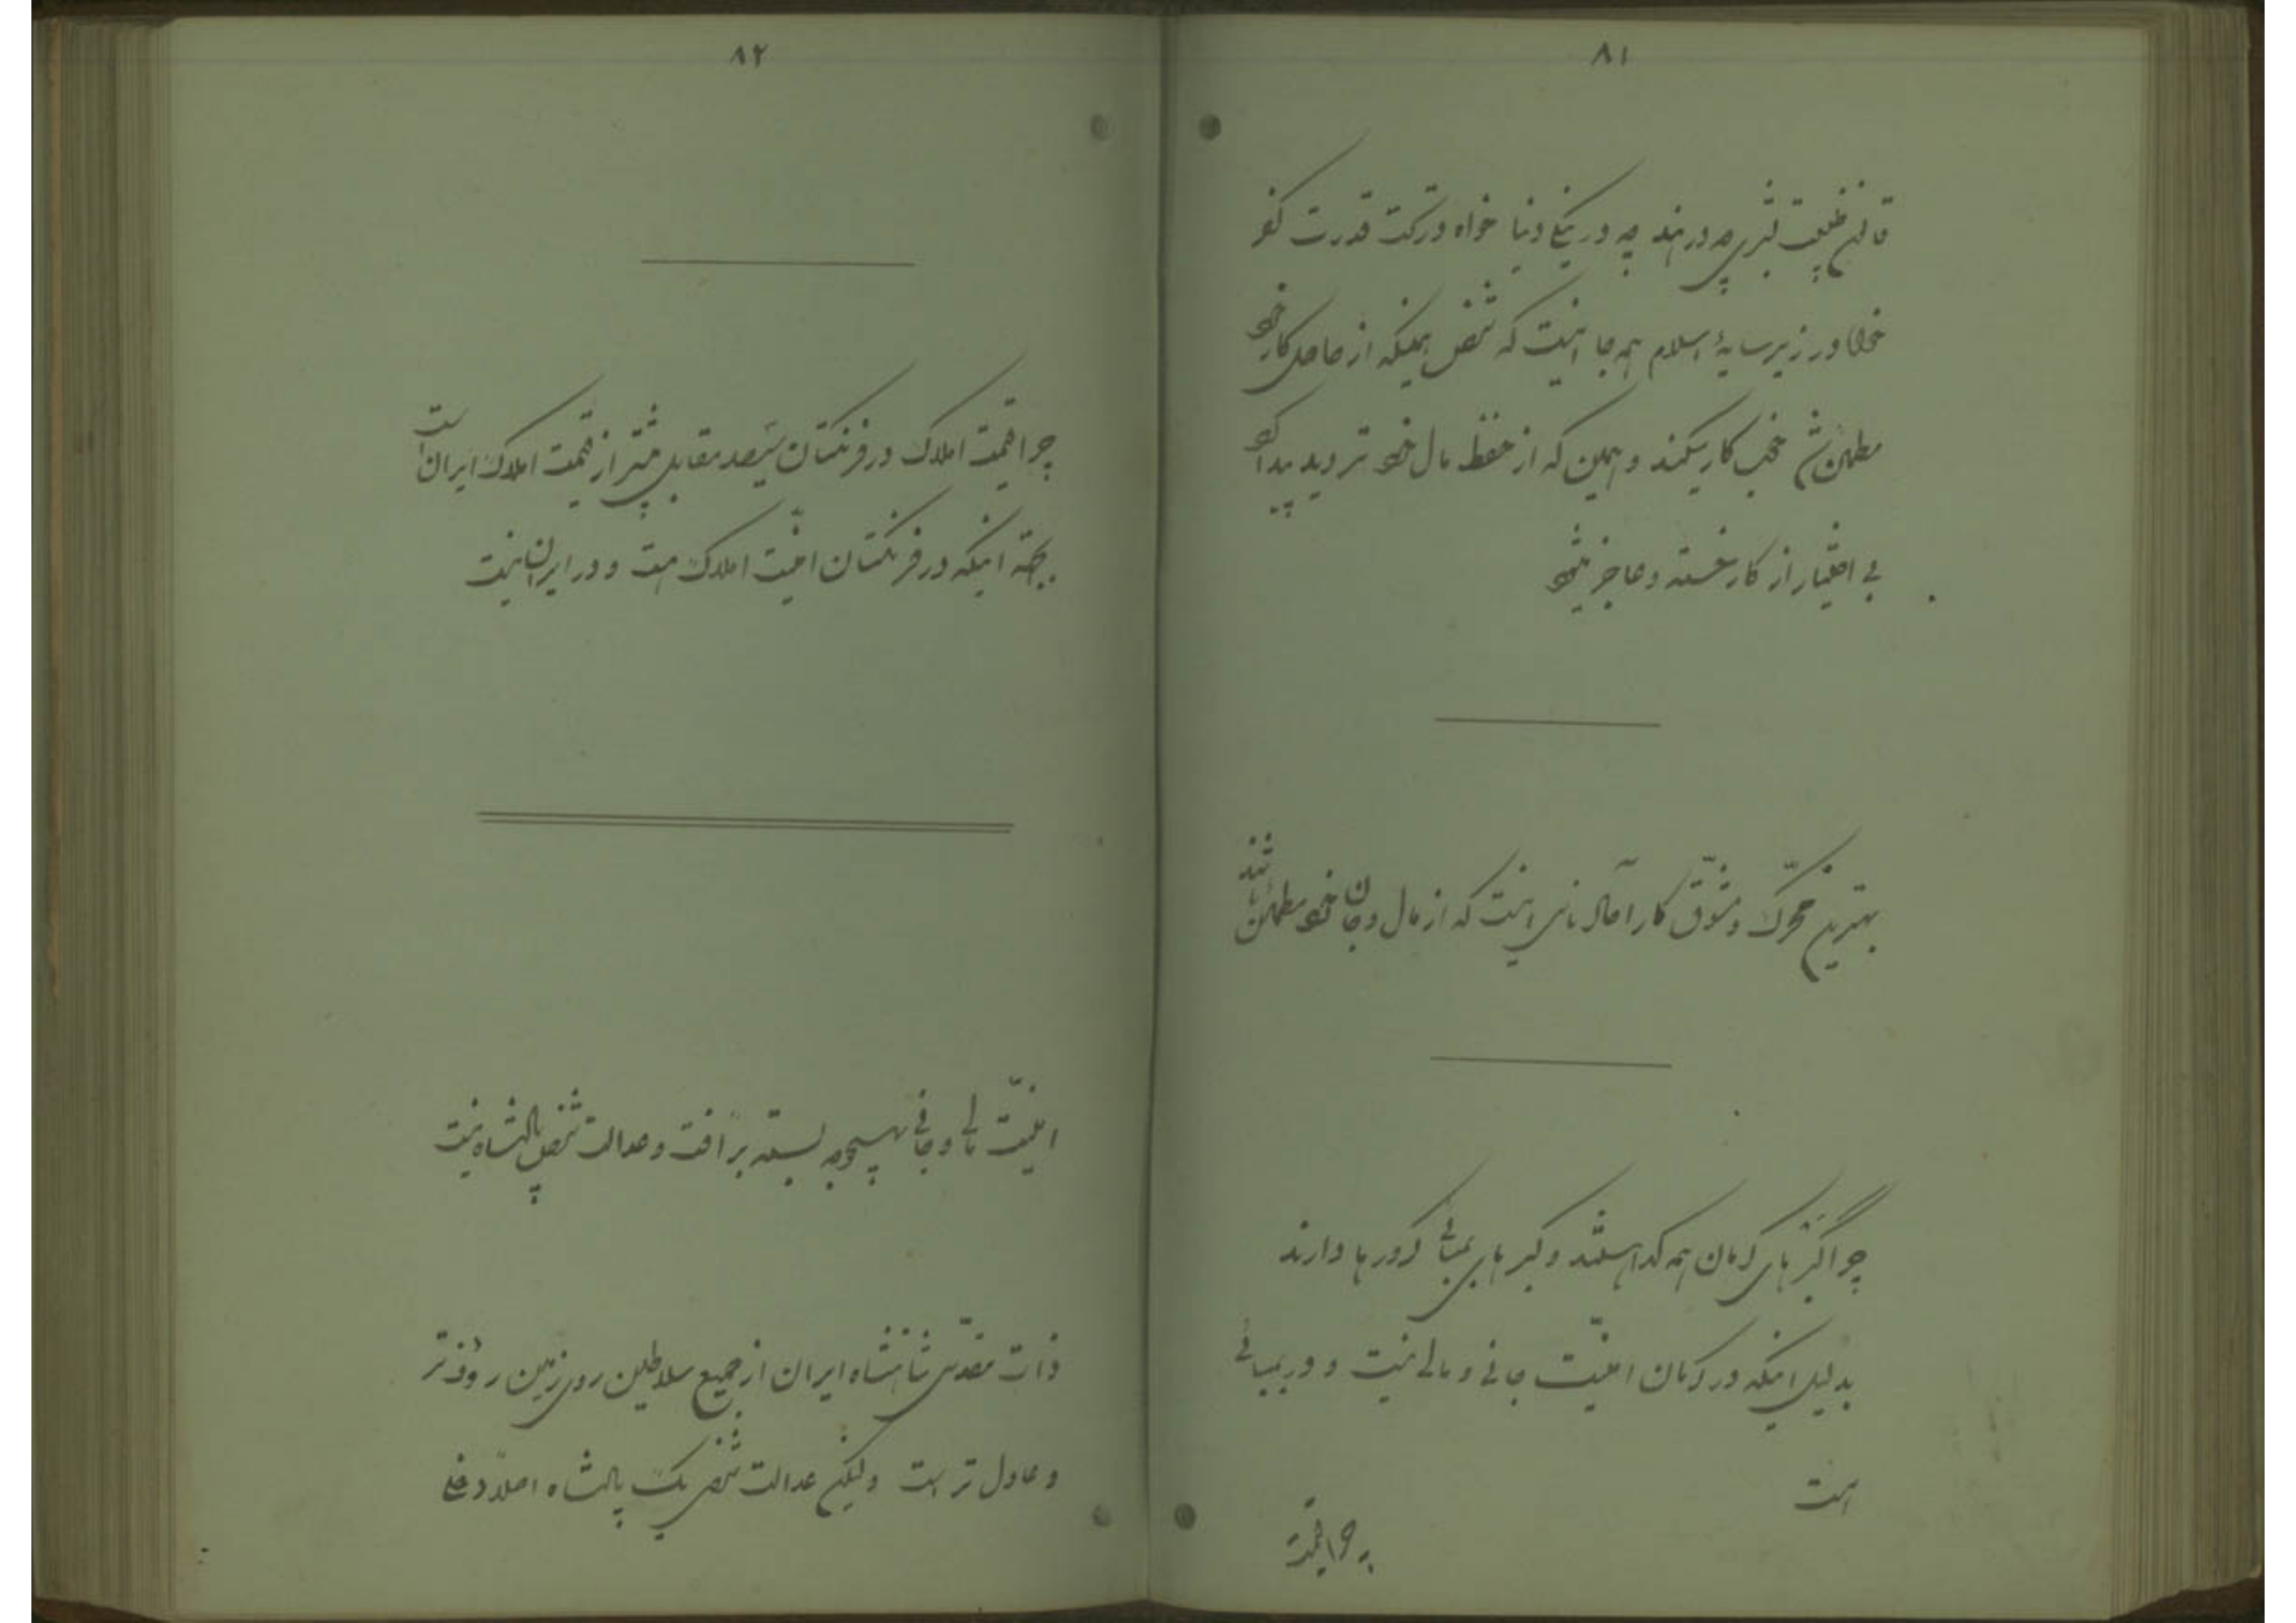 ۸۱
قانون طبیعت بشری چه در هند چه در ینگی دنیا خواه در تحت قدرت کفر
خواه در زیر سایهٔ اسلام همه جا اینست که شخص همینکه از حاصل کار خود
مطمئن شد خوب کار میکند و همین که از حفظ مال خود تردید پیدا کرد
بی اختیار از کار خسته و عاجز میشود
بهترین محرّک و مشوّق کار آحاد ناس اینست که از مال و جان خود مطمئن باشند
چرا گبرهای کرمان همه گدا هستند و گبرهای بمبائی کرورها دارند
بدلیل اینکه در کرمان امنیّت جانی و مالی نیست و در بمبائی
است
چرا قیمت
۸۲
چرا قیمت املاک در فرنگستان سیصد مقابل بیشتر از قیمت املاک ایران است
بجهة اینکه در فرنگستان امنیّت املاک هست و در ایران نیست
امنیّت مالی و جانی بهیچوجه بسته برأفت و عدالت شخص پادشاه نیست
ذات مقدّس شاهنشاه ایران از جمیع سلاطین روی زمین رؤف تر
و عادل تر است ولیکن عدالت شخص یک پادشاه اصلاً دخلی